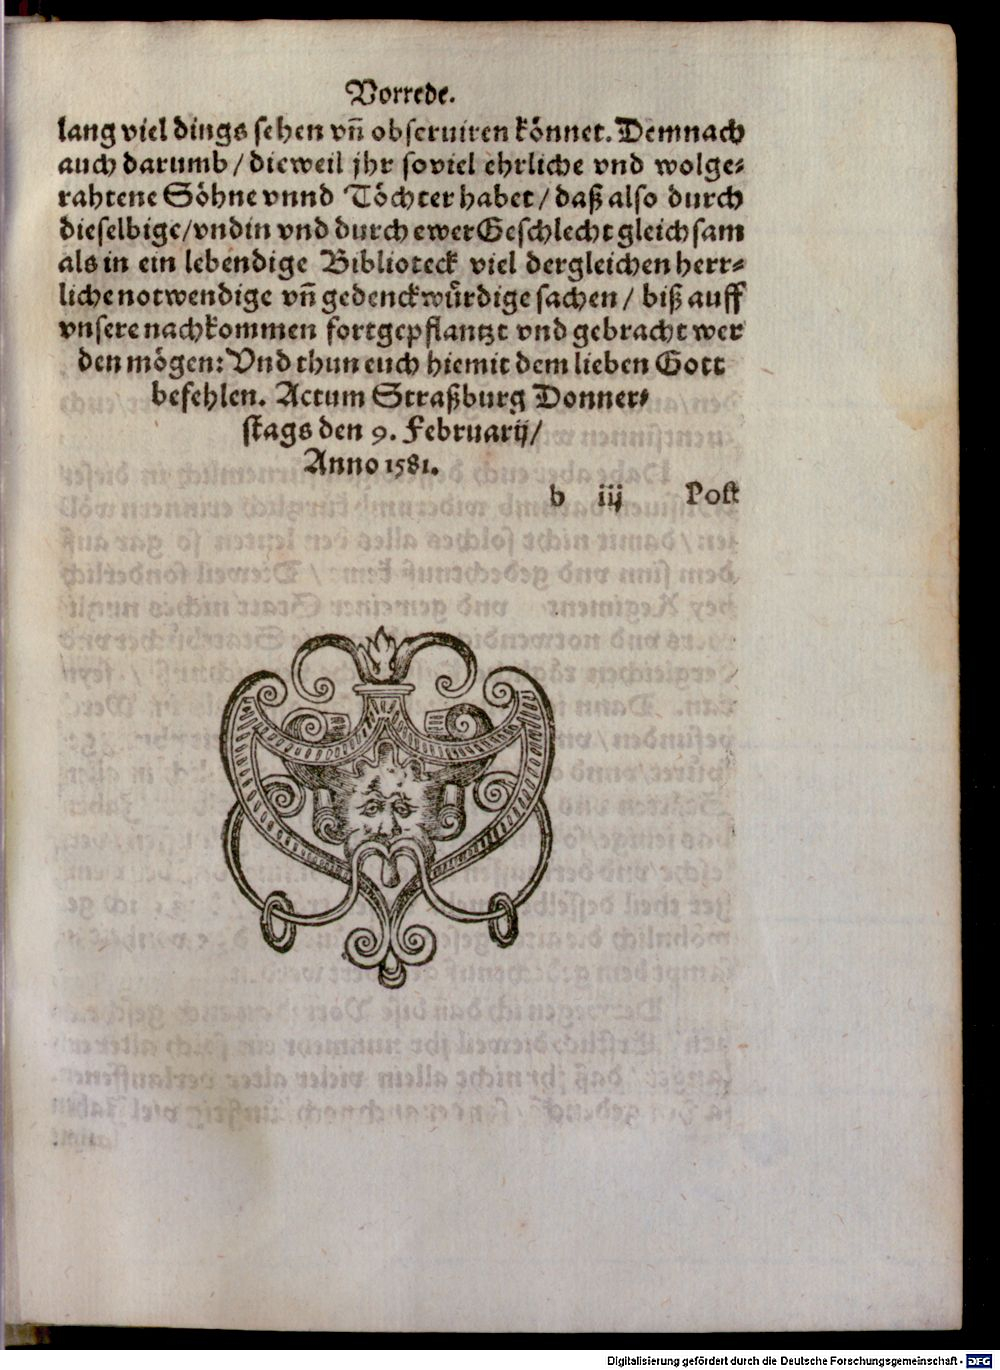 Vorrede.
lang viel dings sehen vn̄ obseruiren könnet. Demnach
auch darumb / dieweil jhr so viel ehrliche vnd wolge-
rahtene Söhne vnnd Töchter habet / daß also durch
dieselbige / vnd in vnd durch ewer Geschlecht gleichsam
als in ein lebendige Biblioteck viel dergleichen herr-
liche notwendige vn̄ gedenckwürdige sachen / biß auff
vnsere nachkommen fortgepflantzt vnd gebracht wer
den mögen: Vnd thun euch hiemit dem lieben Gott
befehlen. Actum Straßburg Donner-
stags den 9. Februarij /
Anno 1581.
b iij Post
Digitalisierung gefördert durch die Deutsche Forschungsgemeinschaft - DFG